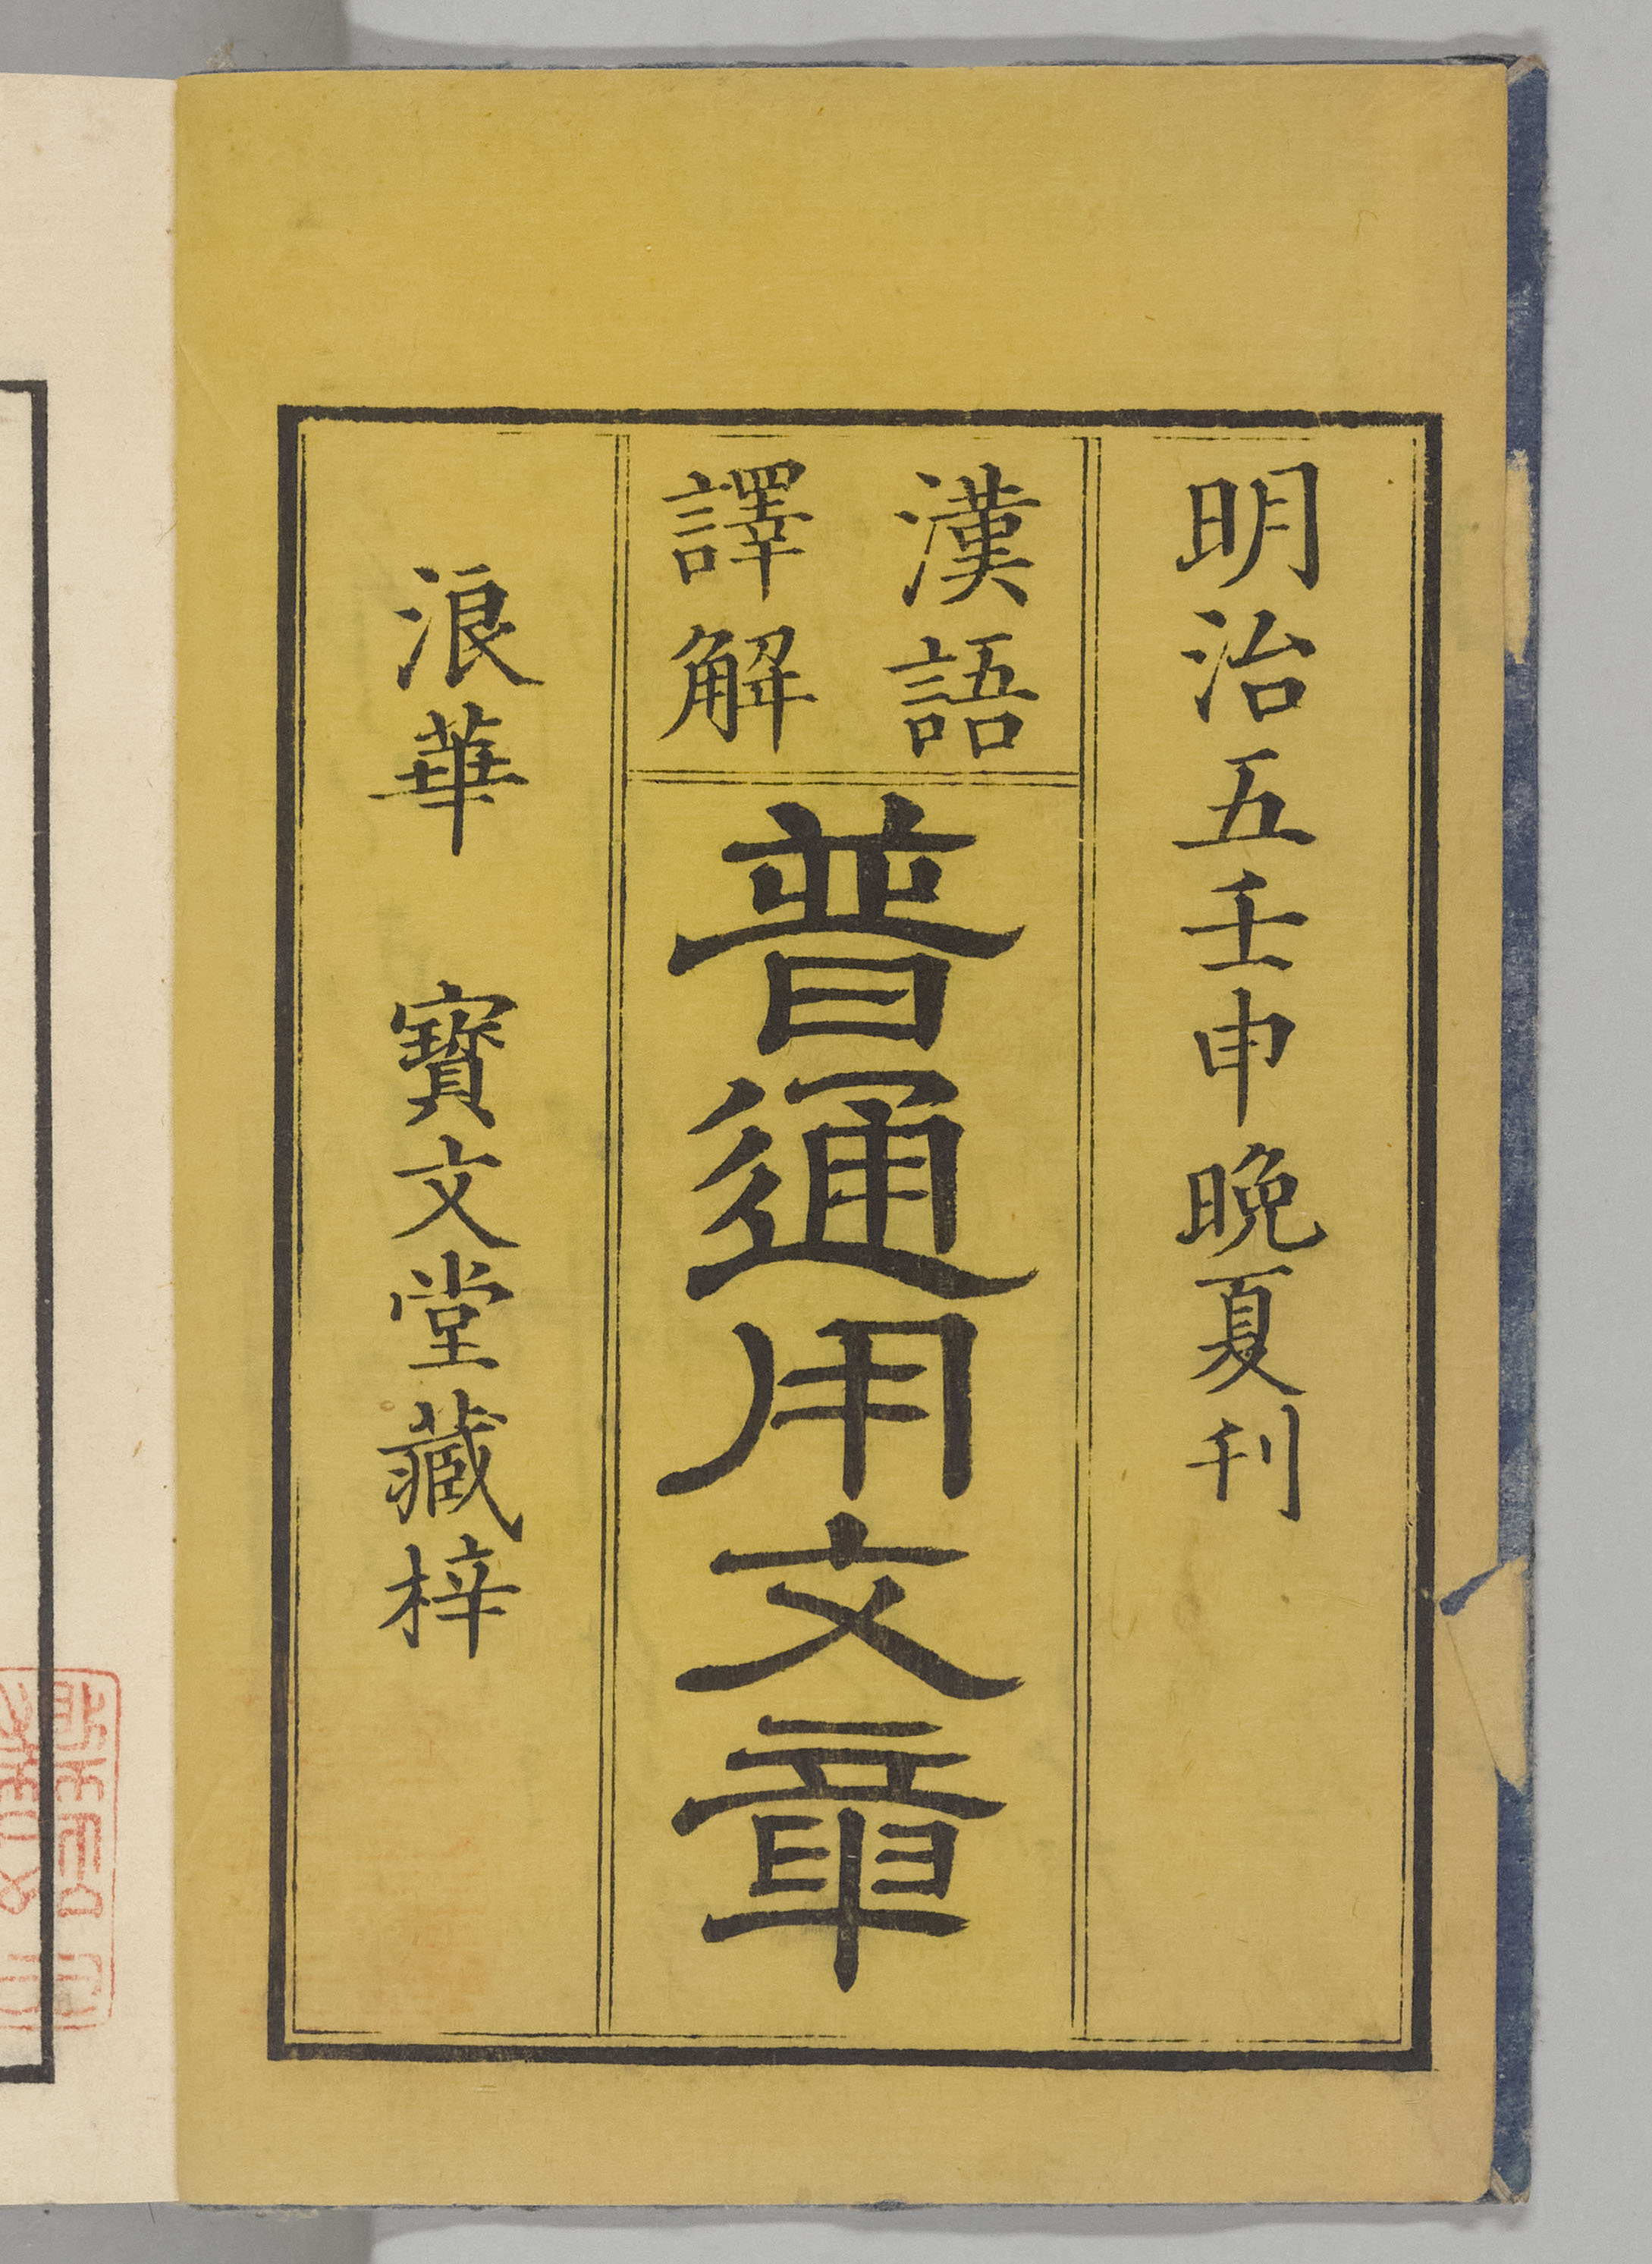 明治五壬申晩夏刊
漢語
譯解
普通用文章
浪華 寶文堂藏梓